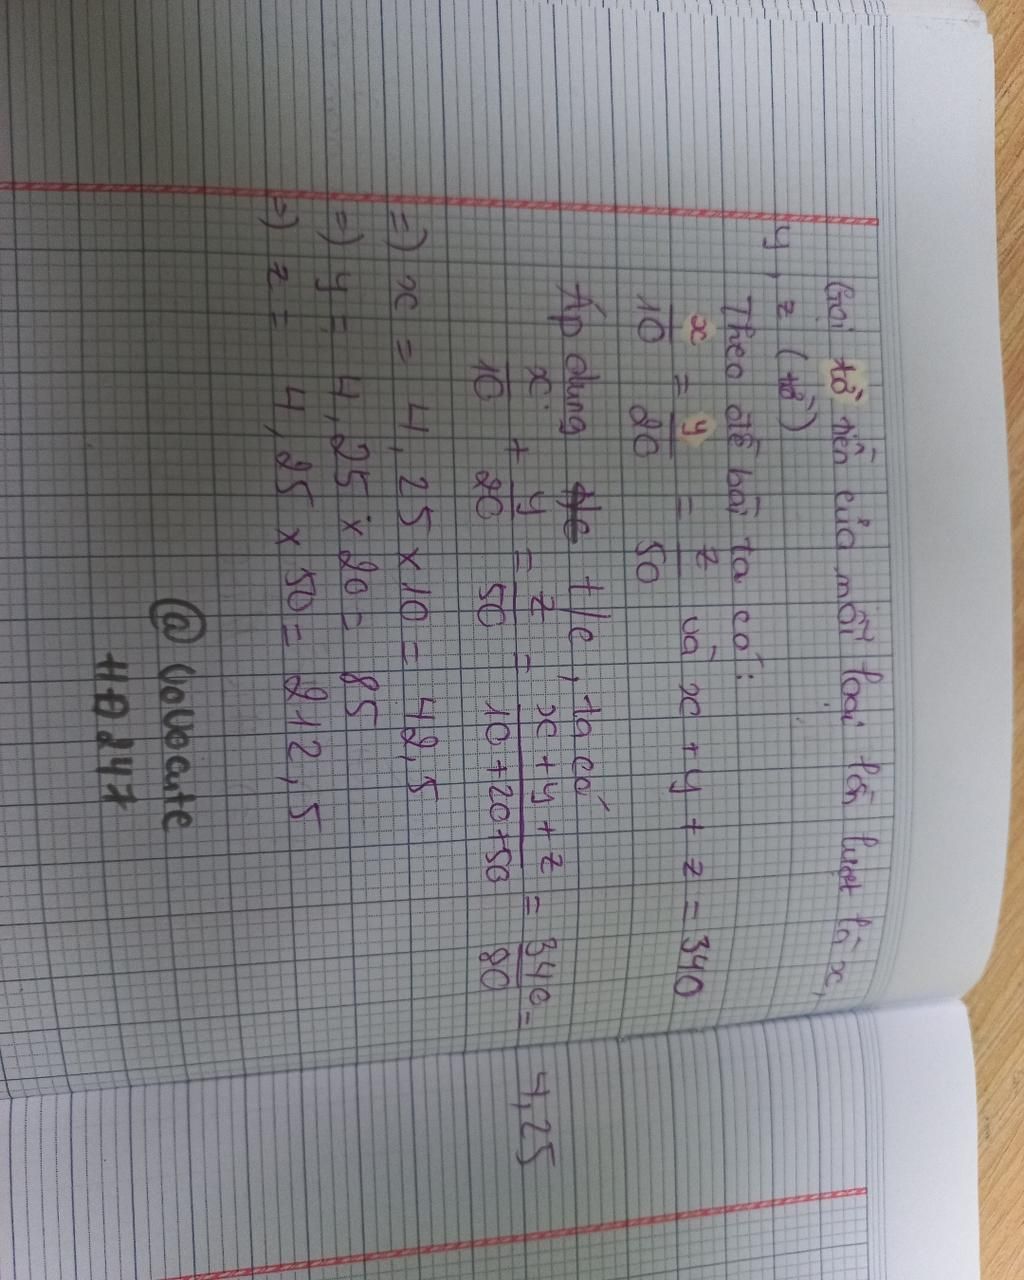 Gọi tờ tiền của mỗi loại lần lượt là x,
y, z (tờ)
Theo đề bài ta có:
x/10 = y/20 = z/50 và x + y + z = 340
Áp dụng t/c, ta có
x/10 + y/20 = z/50 = x+y+z/10+20+50 = 340/80 = 4,25
=) x = 4,25 × 10 = 42,5
=) y = 4,25 × 20 = 85
=) z = 4,25 × 50 = 212,5
@ VoVocute
HĐ247